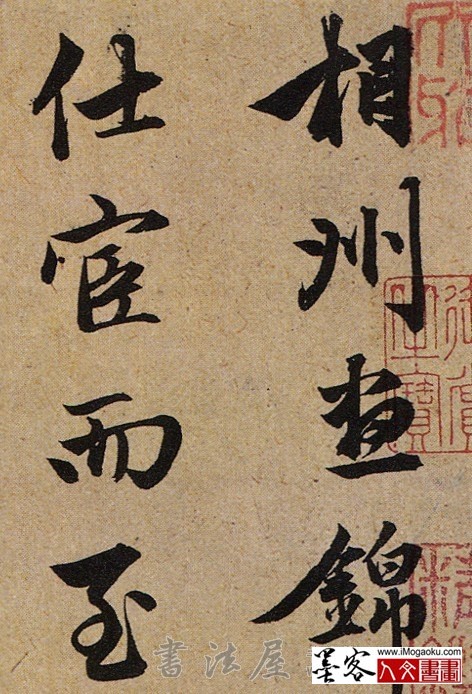 相州晝錦
仕宦而至
書法屋
墨客
www.iMogaoku.com
人文書畫